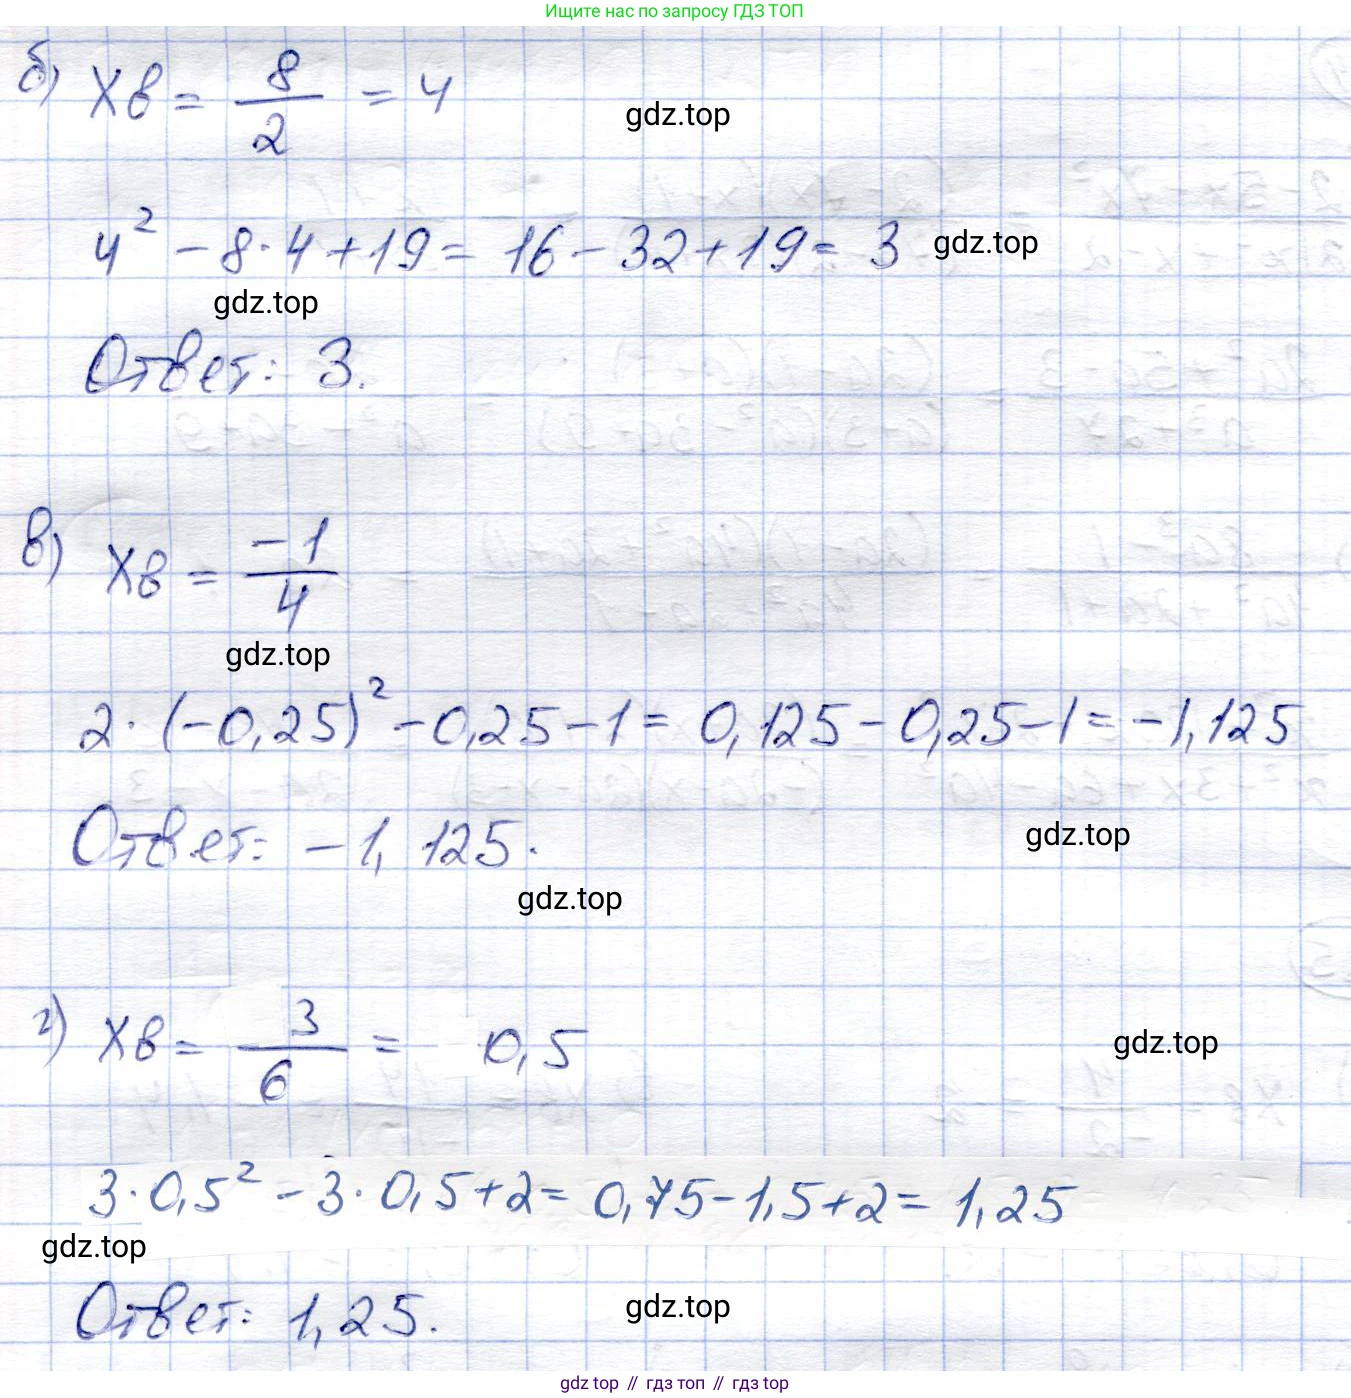 Ищите нас по запросу ГДЗ ТОП
б) xв = 8/2 = 4
gdz.top
4² - 8·4 + 19 = 16 - 32 + 19 = 3
gdz.top
gdz.top
Ответ: 3.
в) xв = -1/4
gdz.top
2·(-0,25)² - 0,25 - 1 = 0,125 - 0,25 - 1 = -1,125
Ответ: -1,125.
gdz.top
gdz.top
г) xв = 3/6 = 0,5
gdz.top
3·0,5² - 3·0,5 + 2 = 0,75 - 1,5 + 2 = 1,25
gdz.top
Ответ: 1,25.
gdz.top
gdz top // гдз топ // гдз top